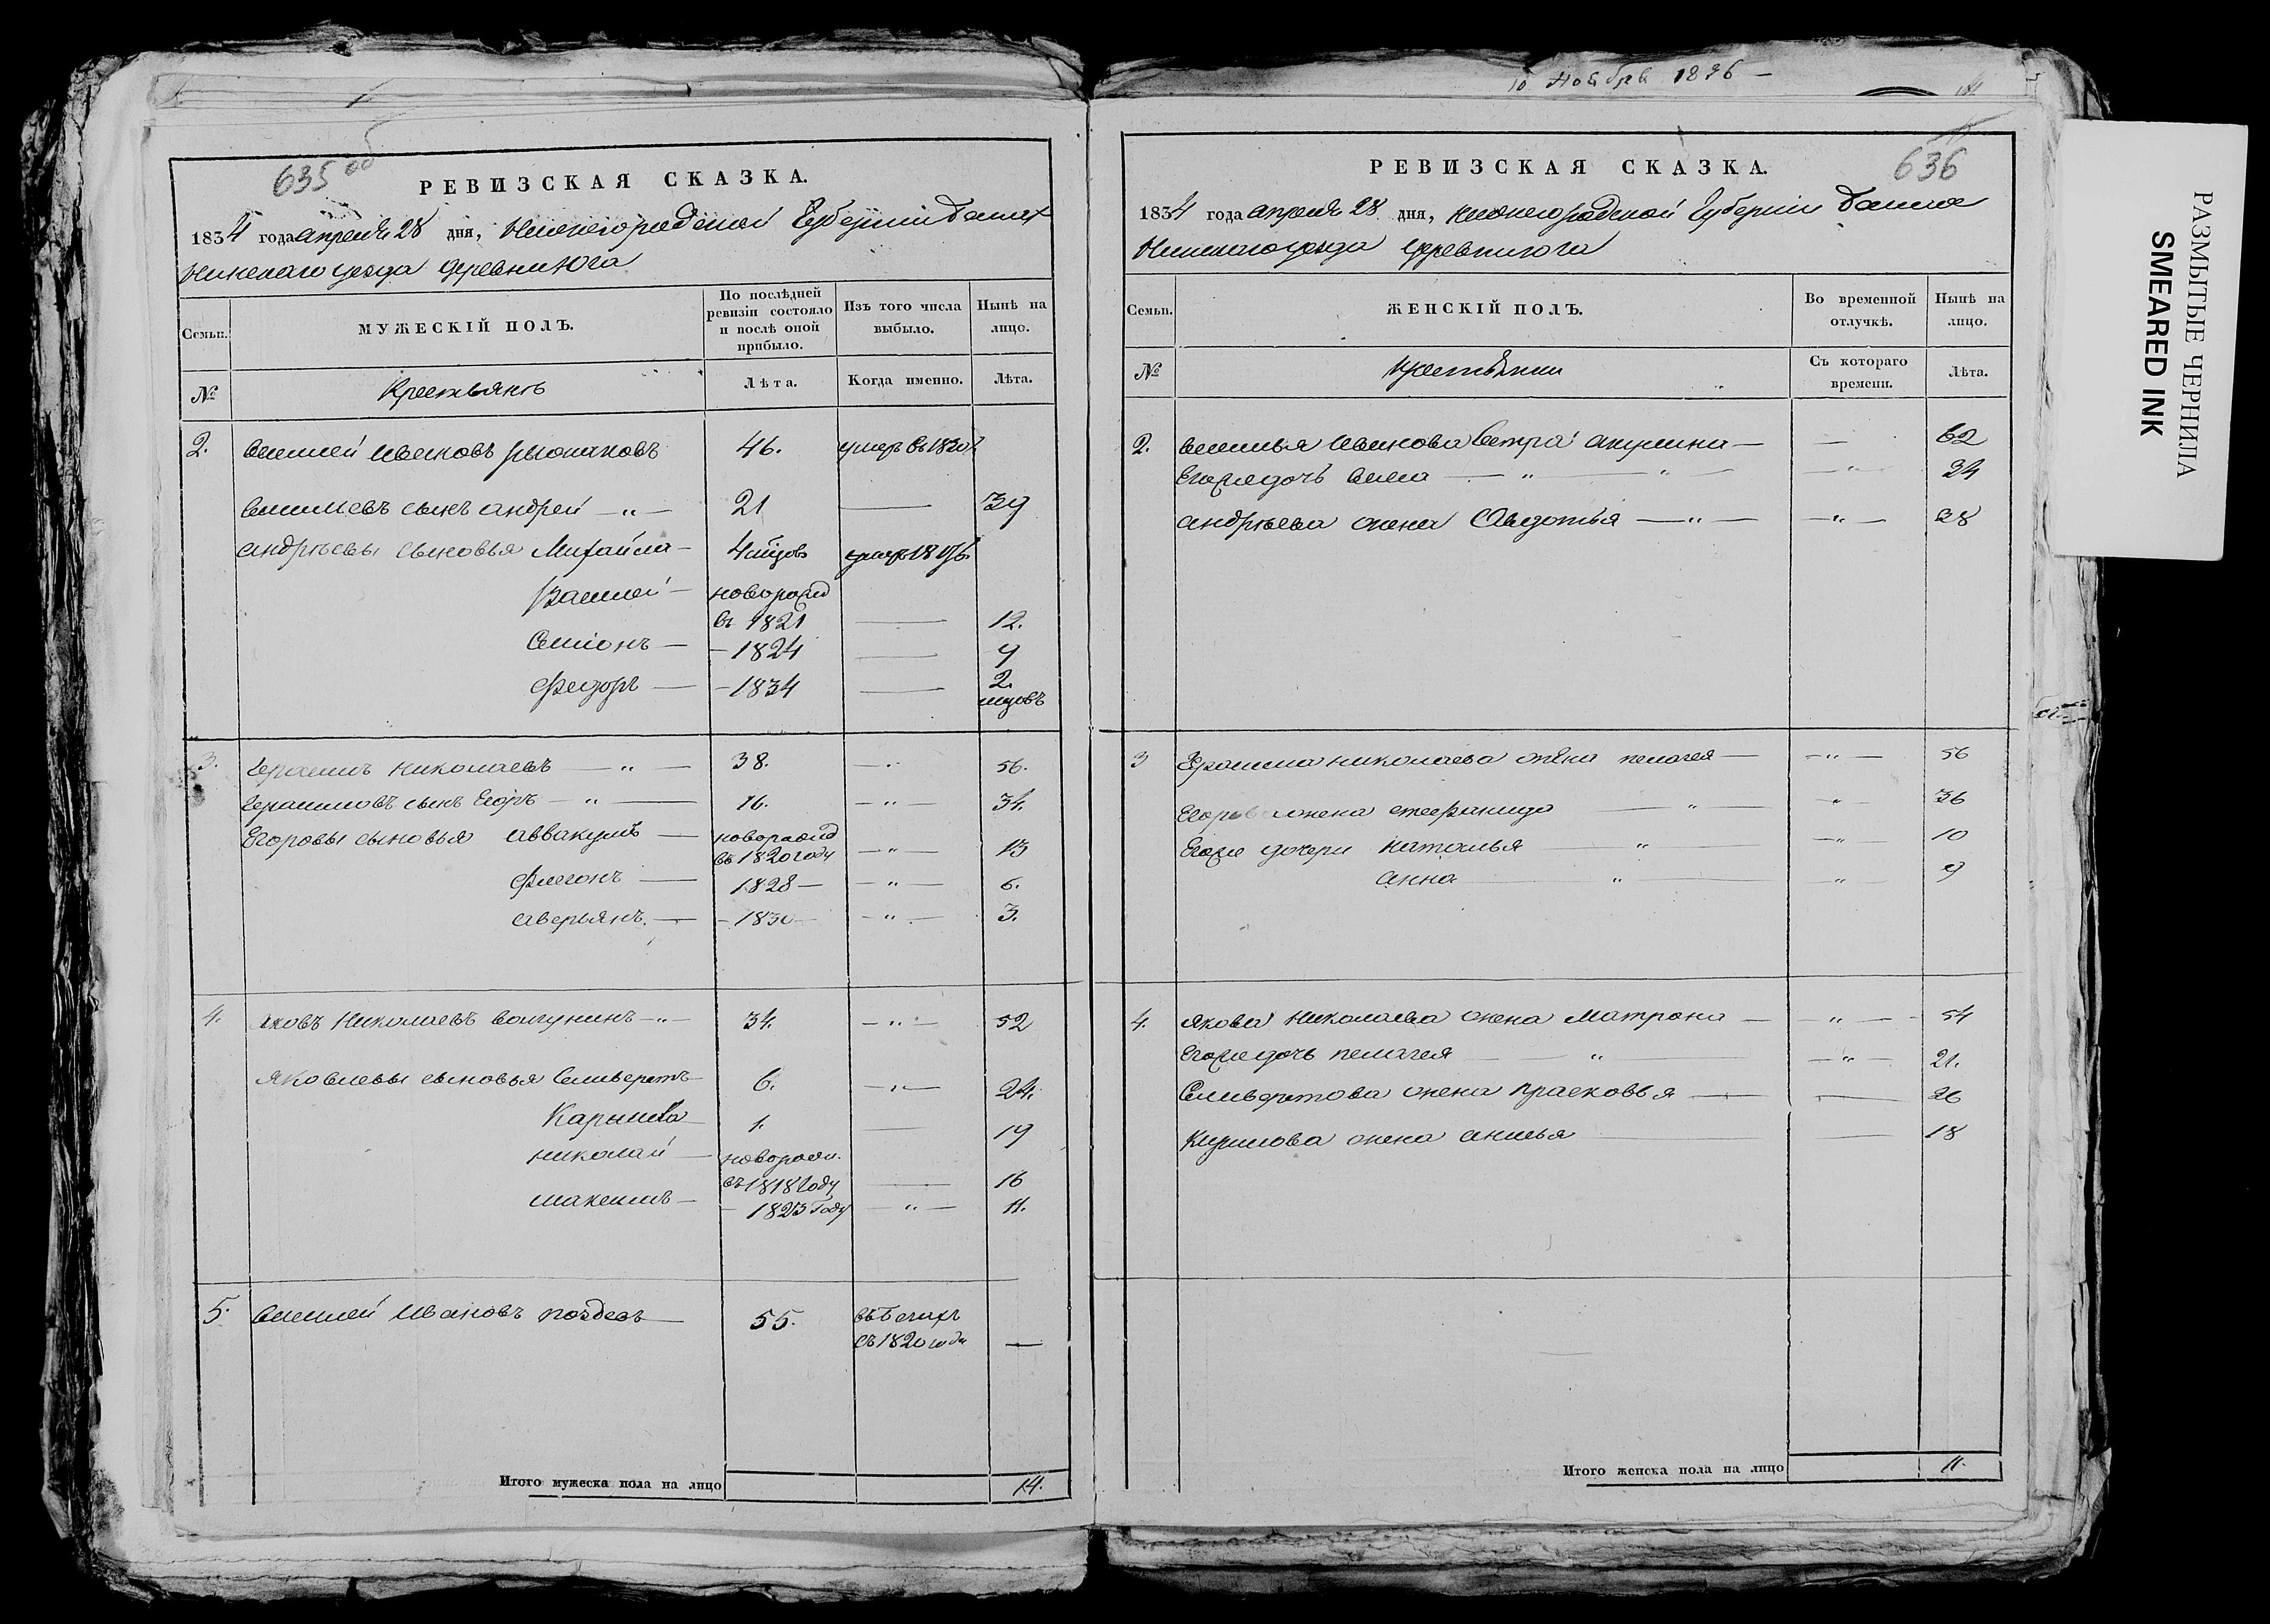 10 Ноября 1896 —
635 об
РЕВИЗСКАЯ СКАЗКА.
1834 года апреля 28 дня, Нижегородской Губернии Балах
Нинскаго уезда деревни Юга
Семьи.
МУЖЕСКІЙ ПОЛЪ.
По послѣдней ревизіи состояло и послѣ оной прибыло.
Изъ того числа выбыло.
Нынѣ на лицо.
№
Крестьянъ
Лѣта.
Когда именно.
Лѣта.
2. Василей Ивановъ 46. умеръ въ 1830
Васильевъ сынъ андрей — „ — 21 — 39
андрѣевы сыновья Михайла — 4 мцовъ умеръ 1816
Василей — новорожд
въ 1821 — 12.
Семіонъ — — 1824 — 9
Федоръ — — 1834 — 2.
мцовъ
3. Герасимъ николаевъ — „ — 38. — „ 56.
Герасимовъ сынъ Егоръ — „ — 16. — „ 34.
Егоровы сыновья аввакумъ — новорожд
въ 1820 году — „ — 13
Флегонъ — 1828 — — „ — 6.
аверьянъ. — — 1830 — — „ — 3.
4. Яковъ Николаевъ волгунинъ — „ — 34. — „ — 52
Яковлевы сыновья Сельверстъ — 6. — „ — 24.
Карнила — 1. — 19
николай — новорожд.
въ 1818 году — 16
максимъ — — 1823 году — „ — 11.
5. Василей Ивановъ 55. въ бегахъ
съ 1820 года —
Итого мужеска пола на лицо 14.
636
РЕВИЗСКАЯ СКАЗКА.
1834 года апреля 28 дня, нижегородской Губернии Балах
Нинскаго уезда деревни юга
Семьи.
ЖЕНСКІЙ ПОЛЪ.
Во временной отлучкѣ.
Нынѣ на лицо.
№
Крестьянки
Съ котораго времени.
Лѣта.
2. Василья Иванова Сестра акулина — — 62
Егоже дочь — „ — „ — — „ 34
андрѣева жена Овдотья — „ — — „ — 38
3 Герасима николаева жена пелагея — — „ — 56
Егорова жена стефанида — „ — „ 36
Егоже дочери наталья — „ — „ 10
анна — „ — „ 9
4. Якова Николаева жена Матрона — — „ — 54
Егоже дочь пелагея — „ — „ — 21.
Сельверстова жена прасковья — — 26
жена анисья — 18
Итого женска пола на лицо 11.
РАЗМЫТЫЕ ЧЕРНИЛА
SMEARED INK